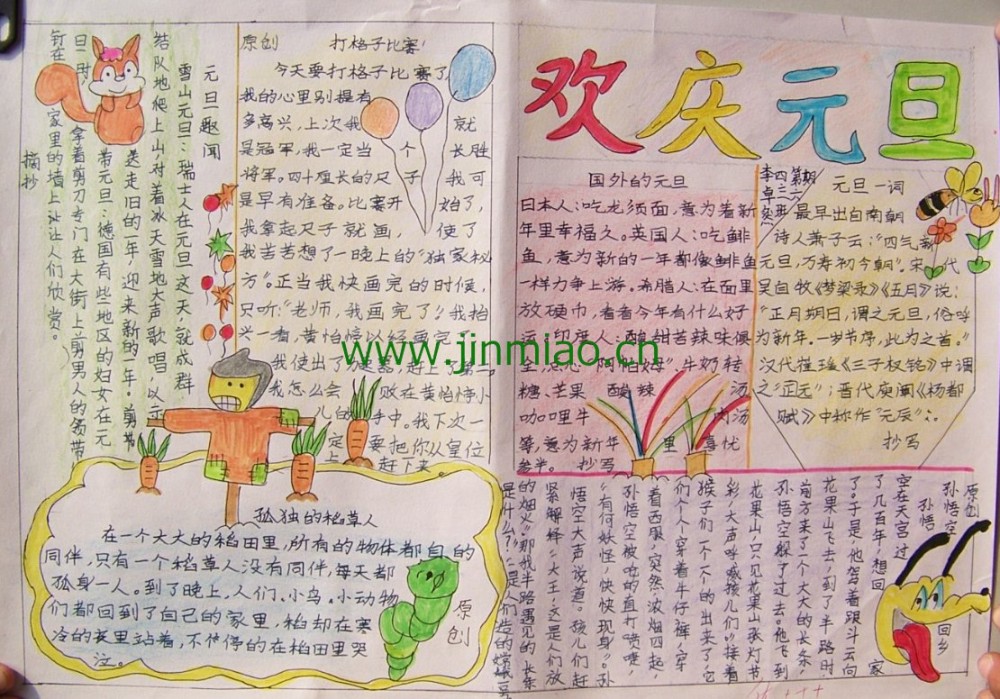 欢庆元旦
第一期
四二班
李卓奂
元旦趣闻
雪山元旦：瑞士人在元旦这天，就成群
结队地爬上山，对着冰天雪地大声歌唱，以示
送走旧的一年，迎来新的一年。剪节
带元旦：德国有些地区的妇女在元
旦时，拿着剪刀专门在大街上剪男人的领带
钉在家里的墙上让让人们欣赏。
摘抄
原创 打格子比赛
今天要打格子比赛了，
我的心里别提有
多高兴，上次我就
是冠军，我一定当个长胜
将军。四十厘长的尺子我可
是早有准备。比赛开始了，
我拿起尺子就画，使了
我苦苦想了一晚上的“独家秘
方”。正当我快画完的时候，
只听“老师，我画完了！我抬
我怎么会败在黄怡婷小
手中。我下次一
定要把你从皇位
上赶下来。
国外的元旦
日本人：吃龙须面，意为着新
年里幸福久。英国人：吃鲱
鱼，意为新的一年都像鲱鱼
一样力争上游。希腊人：在面里
放硬巾，看看今年有什么好
糖、芒果酸辣汤
咖哩牛肉汤
等，意为新年里喜忧
参半。抄写
元旦一词
最早出自南朝
诗人萧子云：“四气新
元旦，万寿初今朝”。宋代
吴自牧《梦梁录》《五月》说：
“正月朔日，谓之元旦，俗呼
为新年。一岁节序，此为之首。”
汉代崔瑗《三子枚铭》中调
之“正元”；晋代庾阐《杨都
赋》中称作“元辰”
抄写
孤独的稻草人
在一个大大的稻田里，所有的物体都自的
同伴，只有一个稻草人没有同伴，每天都
孤身一人。到了晚上，人们、小鸟、小动物
们都回到了自己的家里，稻却在寒
冷的夜里站着，不停停的在稻田里哭
泣。
原创
原创
孙悟空回乡
孙悟空在天宫过
了几百年，想回家
了。于是，他驾着跟斗云向
花果山飞去，到了半路时
前方来了一个大大的长条，
孙悟空躲了过去。他飞到
花果山，只见花果山张灯节
彩，大声呼喊孩儿们”接着
猴子们一个个的出来了，它
们个个穿着牛仔裤，穿
着西服，突然，浓烟四起，
孙悟空被呛的直打喷嚏，
“有何妖怪，快快现身”。孙
悟空大声说道。孩儿们赶
紧解释：“大王，这是人们放
的烟火。”那我半路遇见的长条
是什么？”“是人们造的嫦娥一号
www.jinmiao.cn